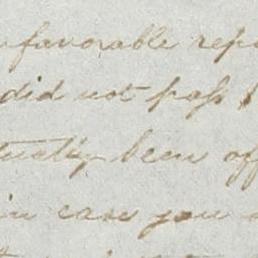 favorable rep
did not paſs
been off
in case you